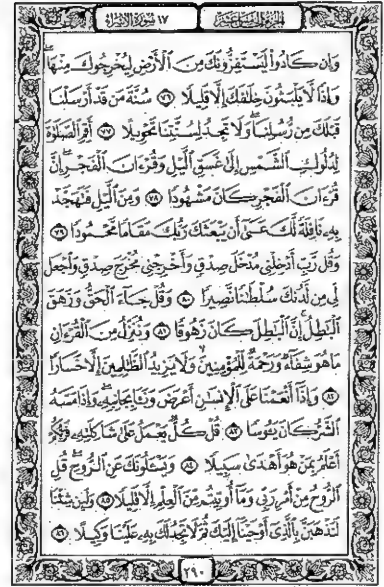 الجزء الخامس عشر ١٧ سورة الإسراء
وَإِن كَادُوا۟ لَيَسْتَفِزُّونَكَ مِنَ ٱلْأَرْضِ لِيُخْرِجُوكَ مِنْهَا ۖ
وَإِذًا لَّا يَلْبَثُونَ خِلَٰفَكَ إِلَّا قَلِيلًا ٧٦ سُنَّةَ مَن قَدْ أَرْسَلْنَا
قَبْلَكَ مِن رُّسُلِنَا ۖ وَلَا تَجِدُ لِسُنَّتِنَا تَحْوِيلًا ٧٧ أَقِمِ ٱلصَّلَوٰةَ
لِدُلُوكِ ٱلشَّمْسِ إِلَىٰ غَسَقِ ٱلَّيْلِ وَقُرْءَانَ ٱلْفَجْرِ ۖ إِنَّ
قُرْءَانَ ٱلْفَجْرِ كَانَ مَشْهُودًا ٧٨ وَمِنَ ٱلَّيْلِ فَتَهَجَّدْ
بِهِۦ نَافِلَةً لَّكَ عَسَىٰٓ أَن يَبْعَثَكَ رَبُّكَ مَقَامًا مَّحْمُودًا ٧٩
وَقُل رَّبِّ أَدْخِلْنِى مُدْخَلَ صِدْقٍ وَأَخْرِجْنِى مُخْرَجَ صِدْقٍ وَٱجْعَل
لِّى مِن لَّدُنكَ سُلْطَٰنًا نَّصِيرًا ٨٠ وَقُلْ جَآءَ ٱلْحَقُّ وَزَهَقَ
ٱلْبَٰطِلُ ۚ إِنَّ ٱلْبَٰطِلَ كَانَ زَهُوقًا ٨١ وَنُنَزِّلُ مِنَ ٱلْقُرْءَانِ
مَا هُوَ شِفَآءٌ وَرَحْمَةٌ لِّلْمُؤْمِنِينَ ۙ وَلَا يَزِيدُ ٱلظَّٰلِمِينَ إِلَّا خَسَارًا
٨٢ وَإِذَآ أَنْعَمْنَا عَلَى ٱلْإِنسَٰنِ أَعْرَضَ وَنَـَٔا بِجَانِبِهِۦ ۖ وَإِذَا مَسَّهُ
ٱلشَّرُّ كَانَ يَـُٔوسًا ٨٣ قُلْ كُلٌّ يَعْمَلُ عَلَىٰ شَاكِلَتِهِۦ فَرَبُّكُمْ
أَعْلَمُ بِمَنْ هُوَ أَهْدَىٰ سَبِيلًا ٨٤ وَيَسْـَٔلُونَكَ عَنِ ٱلرُّوحِ ۖ قُلِ
ٱلرُّوحُ مِنْ أَمْرِ رَبِّى وَمَآ أُوتِيتُم مِّنَ ٱلْعِلْمِ إِلَّا قَلِيلًا ٨٥ وَلَئِن شِئْنَا
لَنَذْهَبَنَّ بِٱلَّذِىٓ أَوْحَيْنَآ إِلَيْكَ ثُمَّ لَا تَجِدُ لَكَ بِهِۦ عَلَيْنَا وَكِيلًا ٨٦
٢٩٠